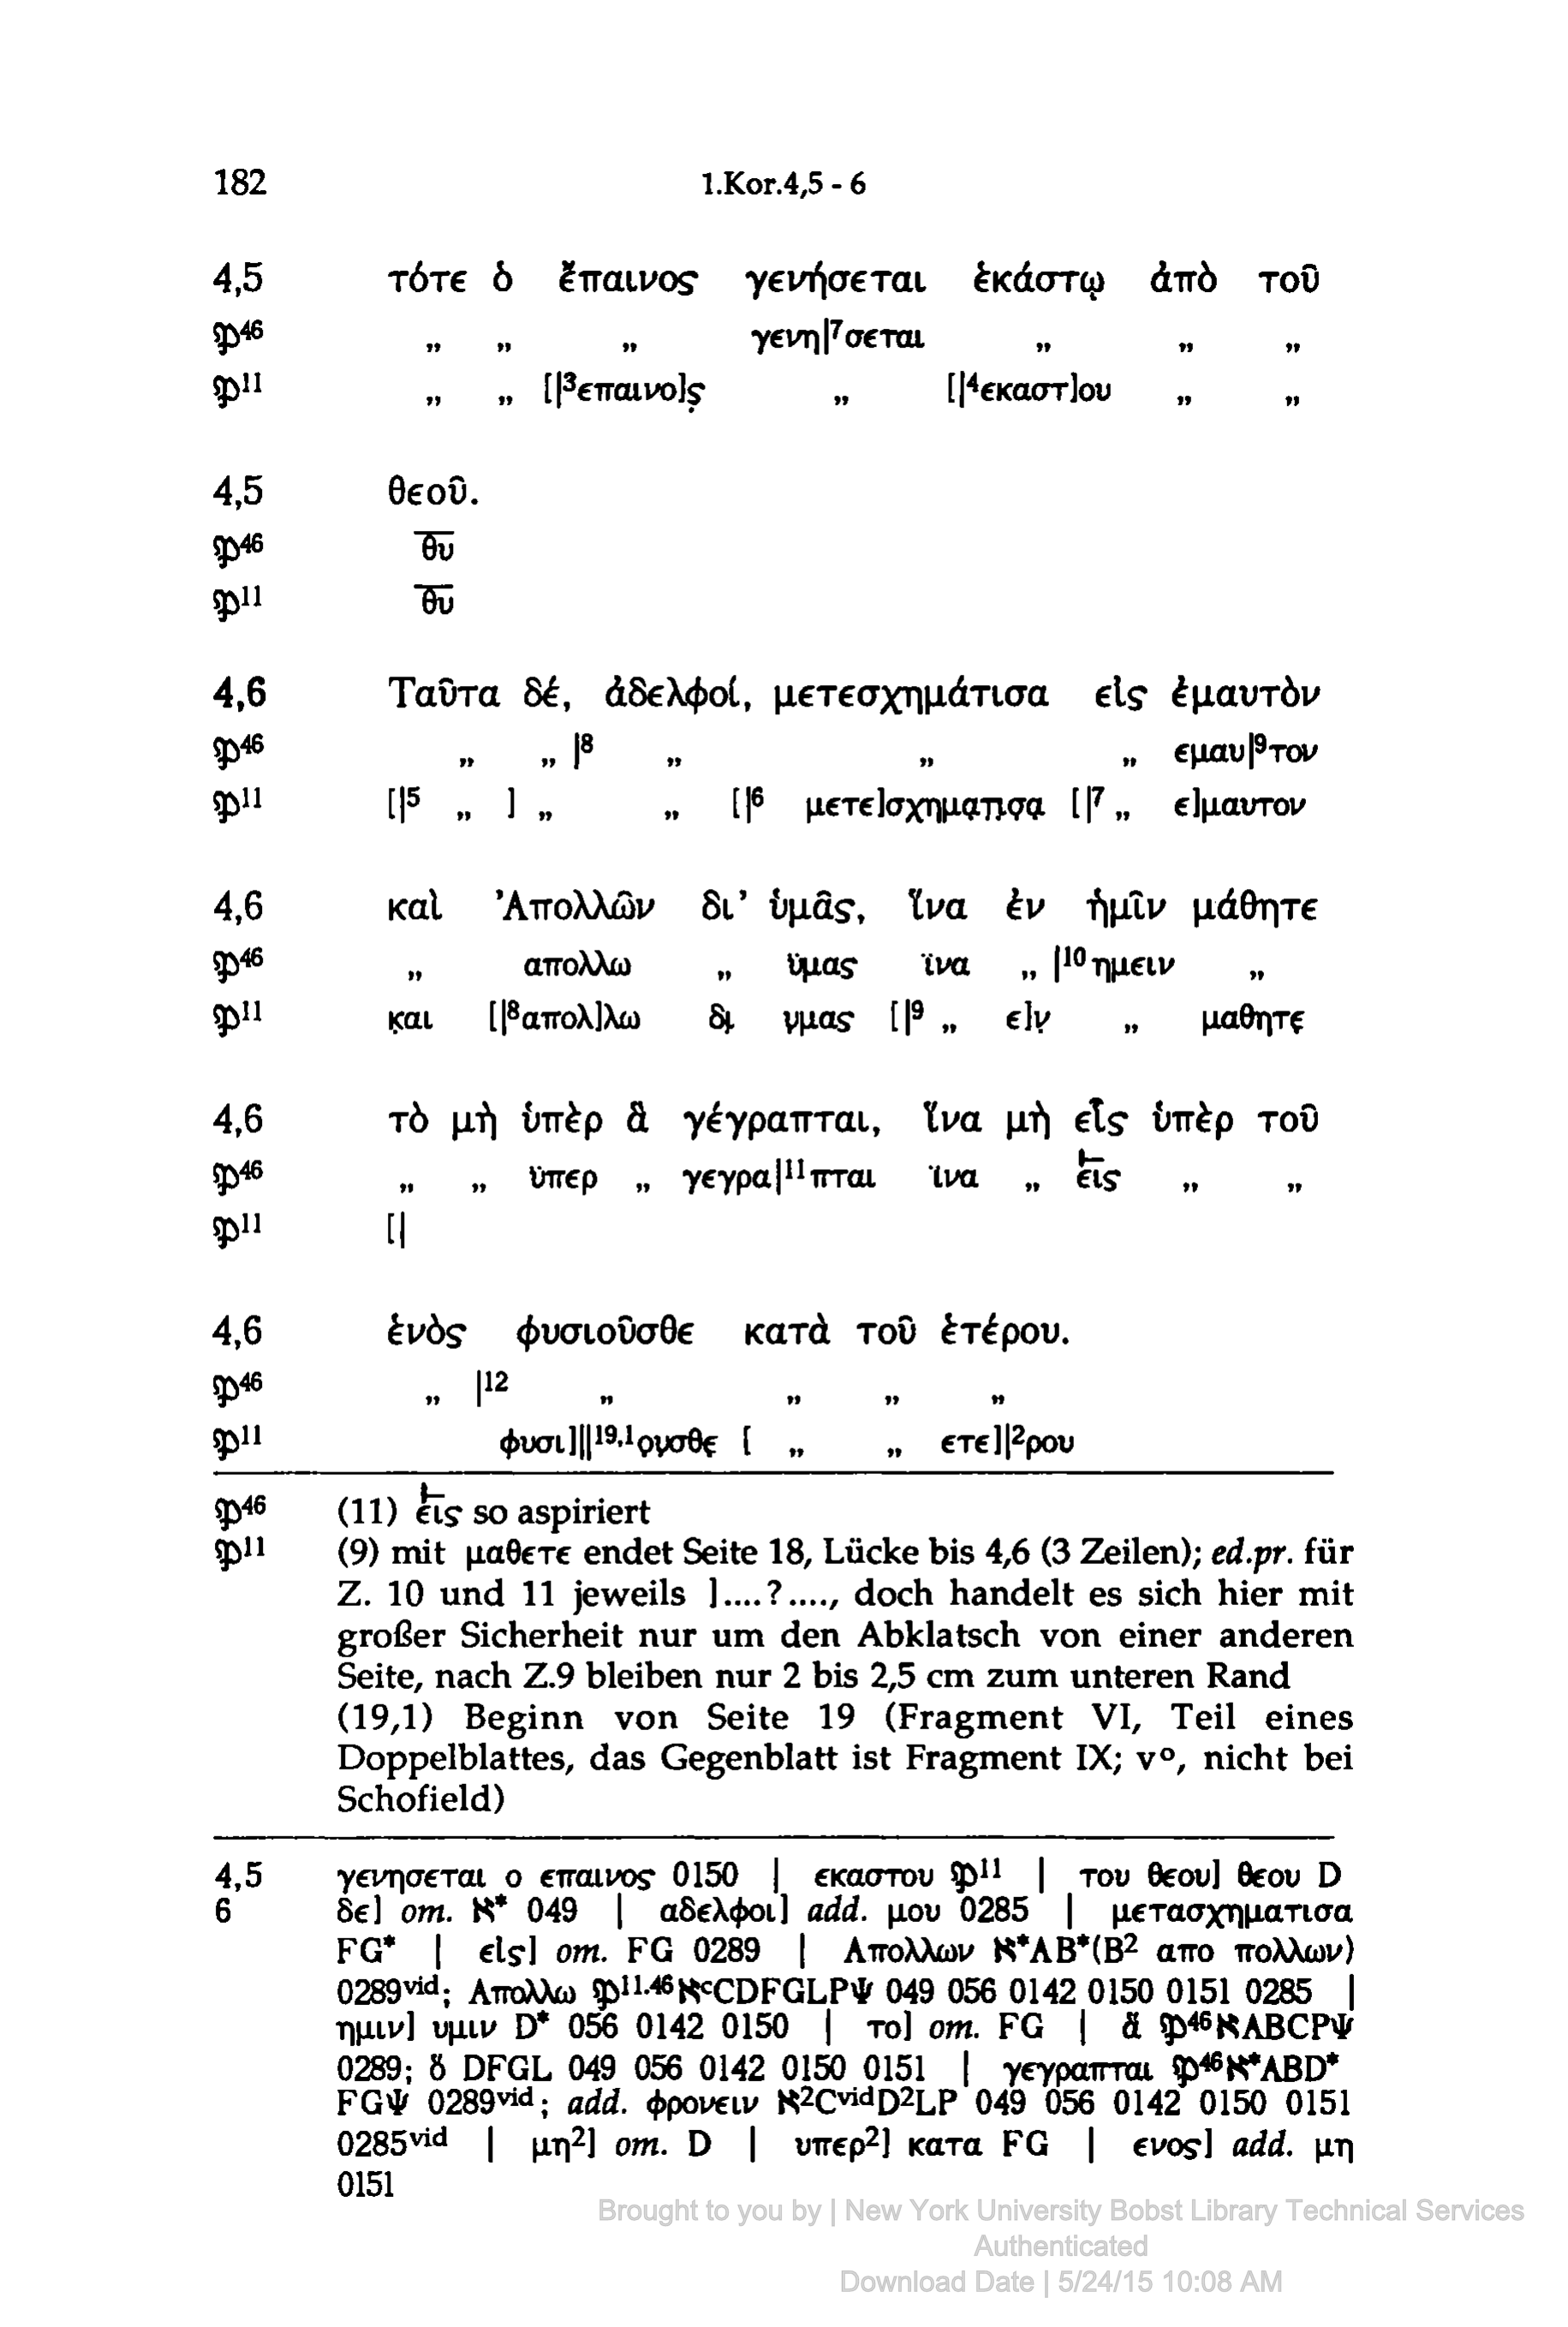 182 1.Kor.4,5 - 6
4,5 τότε ὁ ἔπαινος γενήσεται ἑκάστῳ ἀπὸ τοῦ
𝔓⁴⁶ „ „ „ γενη|⁷σεται „ „ „
𝔓¹¹ „ „ [|³επαινο]ς̣ „ [|⁴εκαστ]ου „ „
4,5 θεοῦ.
𝔓⁴⁶ θ̅υ̅
𝔓¹¹ θ̅υ̅
4,6 Ταῦτα δέ, ἀδελφοί, μετεσχημάτισα εἰς ἐμαυτὸν
𝔓⁴⁶ „ „ |⁸ „ „ „ εμαυ|⁹τον
𝔓¹¹ [|⁵ „ ] „ „ [|⁶ μετε]σχημα̣τι̣σ̣α̣ [|⁷ „ ε]μαυτον
4,6 καὶ Ἀπολλῶν δι’ ὑμᾶς, ἵνα ἐν ἡμῖν μάθητε
𝔓⁴⁶ „ απολλω „ ϋμας ϊνα „ |¹⁰ημειν „
𝔓¹¹ κ̣αι [|⁸απολ]λω δι̣ υ̣μας [|⁹ „ ε]ν̣ „ μαθητε̣
4,6 τὸ μὴ ὑπὲρ ἃ γέγραπται, ἵνα μὴ εἷς ὑπὲρ τοῦ
𝔓⁴⁶ „ „ ϋπερ „ γεγρα|¹¹πται ϊνα „ ⱶεις „ „
𝔓¹¹ [|
4,6 ἑνὸς φυσιοῦσθε κατὰ τοῦ ἑτέρου.
𝔓⁴⁶ „ |¹² „ „ „ „
𝔓¹¹ φυσι]||¹⁹,¹ο̣υ̣σθε̣ [ „ „ ετε]|²ρου
𝔓⁴⁶ (11) ⱶεις so aspiriert
𝔓¹¹ (9) mit μαθετε endet Seite 18, Lücke bis 4,6 (3 Zeilen); ed.pr. für
Z. 10 und 11 jeweils ]....?...., doch handelt es sich hier mit
großer Sicherheit nur um den Abklatsch von einer anderen
Seite, nach Z.9 bleiben nur 2 bis 2,5 cm zum unteren Rand
(19,1) Beginn von Seite 19 (Fragment VI, Teil eines
Doppelblattes, das Gegenblatt ist Fragment IX; vº, nicht bei
Schofield)
4,5 γενησεται ο επαινος 0150 | εκαστου 𝔓¹¹ | του θεου] θεου D
6 δε] om. ℵ* 049 | αδελφοι] add. μου 0285 | μετασχηματισα
FG* | εἰς] om. FG 0289 | Απολλων ℵ*AB*(B² απο πολλων)
0289ᵛⁱᵈ; Απολλω 𝔓¹¹·⁴⁶ℵᶜCDFGLPΨ 049 056 0142 0150 0151 0285 |
ημιν] υμιν D* 056 0142 0150 | το] om. FG | ἃ 𝔓⁴⁶ℵABCPΨ
0289; ὃ DFGL 049 056 0142 0150 0151 | γεγραπται 𝔓⁴⁶ℵ*ABD*
FGΨ 0289ᵛⁱᵈ; add. φρονειν ℵ²CᵛⁱᵈD²LP 049 056 0142 0150 0151
0285ᵛⁱᵈ | μη²] om. D | υπερ²] κατα FG | ενος] add. μη
0151
Brought to you by | New York University Bobst Library Technical Services
Authenticated
Download Date | 5/24/15 10:08 AM